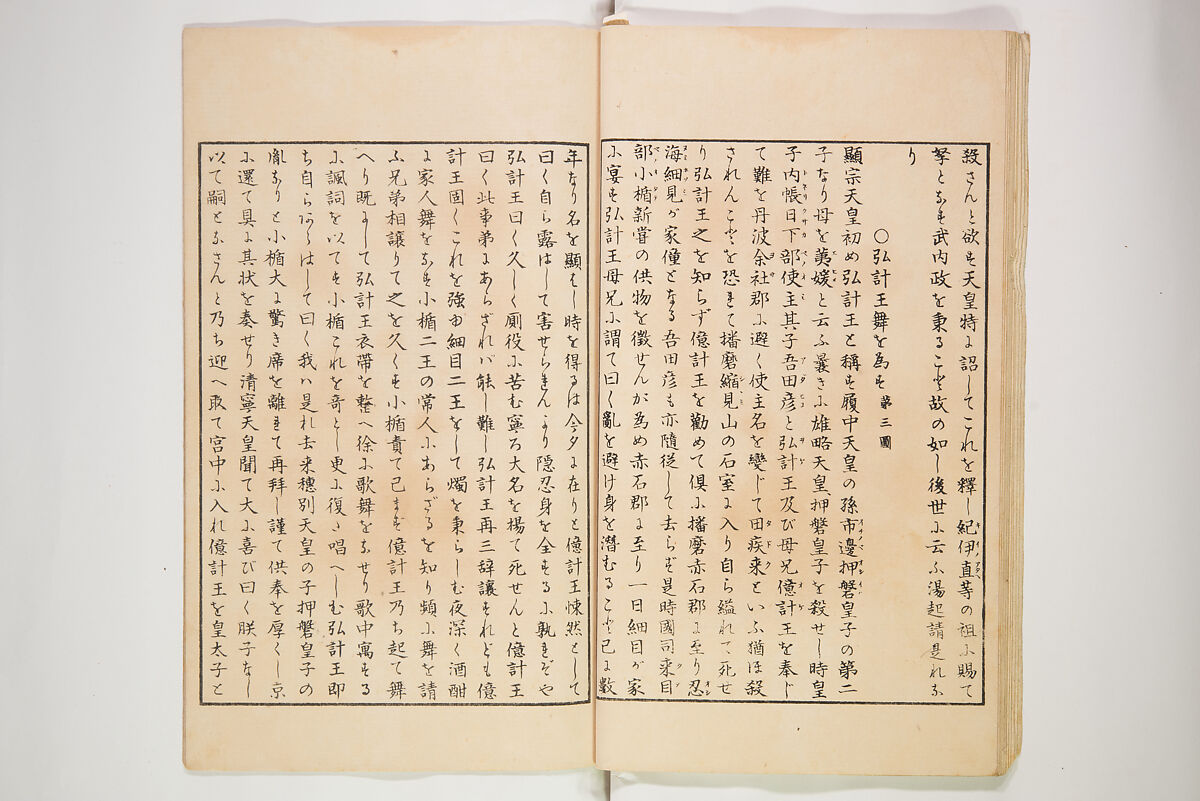 殺さんと欲す天皇特に詔してこれを釋し紀伊直等の祖に賜て
孥となす武内政を秉ること故の如し後世に云ふ湯起請是れな
り
〇弘計王舞を為す 第三圖
顯宗天皇初め弘計王と稱す履中天皇の孫市邊押磐皇子の第二
子なり母を荑媛と云ふ曩きに雄略天皇、押磐皇子を殺せし時皇
子内帳日下部使主其子吾田彦と弘計王及び母兄億計王を奉じ
て難を丹波余社郡に避く使主名を變じて田疾来といふ猶ほ殺
されんことを恐れて播磨縮見山の石室に入り自ら縊れて死せ
り弘計王之を知らず億計王を勸めて倶に播磨赤石郡に至り忍
海細見が家僮となる吾田彦も亦隨従して去らず是時國司来目
部小楯新嘗の供物を徴せんが為め赤石郡に至り一日細目が家
に宴す弘計王母兄に謂て曰く亂を避け身を潜むること已に數
年なり名を顯はし時を得るは今夕に在りと億計王悚然として
曰く自ら露はして害せられんより隠忍身を全するに孰れぞや
弘計王曰く久しく厠役に苦む寧ろ大名を楊て死せんと億計王
曰く此事弟にあらざれバ能し難し弘計王再三辞讓すれども億
計王固くこれを強ゆ細目二王をして燭を秉らしむ夜深く酒酣
に家人舞をなす小楯二王の常人にあらざるを知り頻に舞を請
ふ兄弟相讓りて之を久くす小楯責て已まず億計王乃ち起て舞
へり既にして弘計王衣帶を整へ徐に歌舞をなせり歌中寓する
に諷詞を以てす小楯これを奇とし更に復た唱へしむ弘計王即
ち自らあらはして曰く我ハ是れ去来穗別天皇の子押磐皇子の
胤なりと小楯大に驚き席を離れて再拜し謹て供奉を厚くし京
に還て具に其状を奏せり清寧天皇聞て大に喜び曰く朕子なし
以て嗣となさんと乃ち迎へ取て宮中に入れ億計王を皇太子と